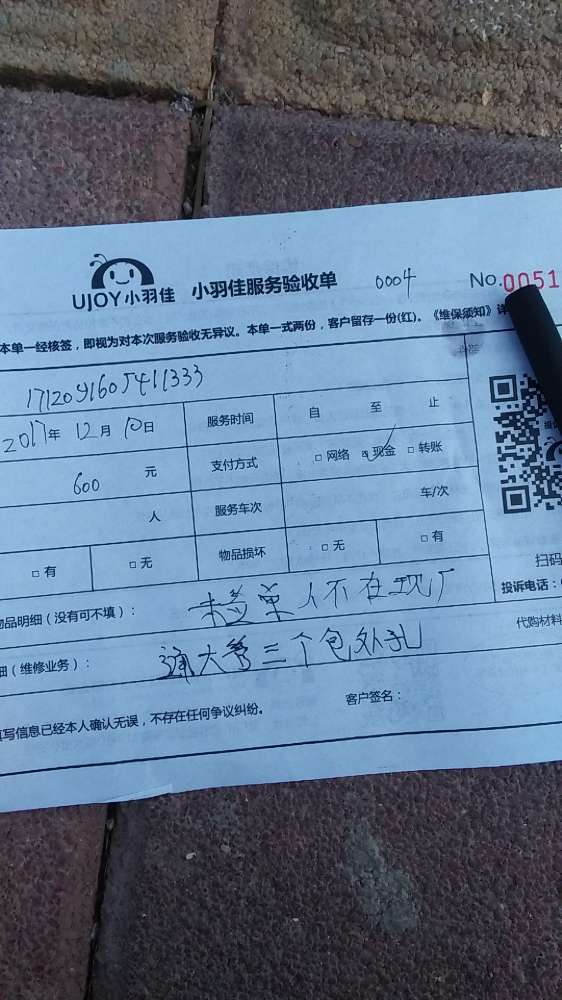 UJOY小羽佳 小羽佳服务验收单 0004 No.0051
本单一经核签，即视为对本次服务验收无异议。本单一式两份，客户留存一份(红)。《维保须知》详
1712091605411333
2017年 12月 10日 服务时间 自 至 止
600 元 支付方式 □ 网络 ☑ 现金 □ 转账
人 服务车次 车/次
□ 有 □ 无 物品损坏 □ 无 □ 有
扫码
投诉电话：
物品明细（没有可不填）： 未签单 人不在现厂
代购材料
细（维修业务）： 通大管三个包外孔
填写信息已经本人确认无误，不存在任何争议纠纷。 客户签名：